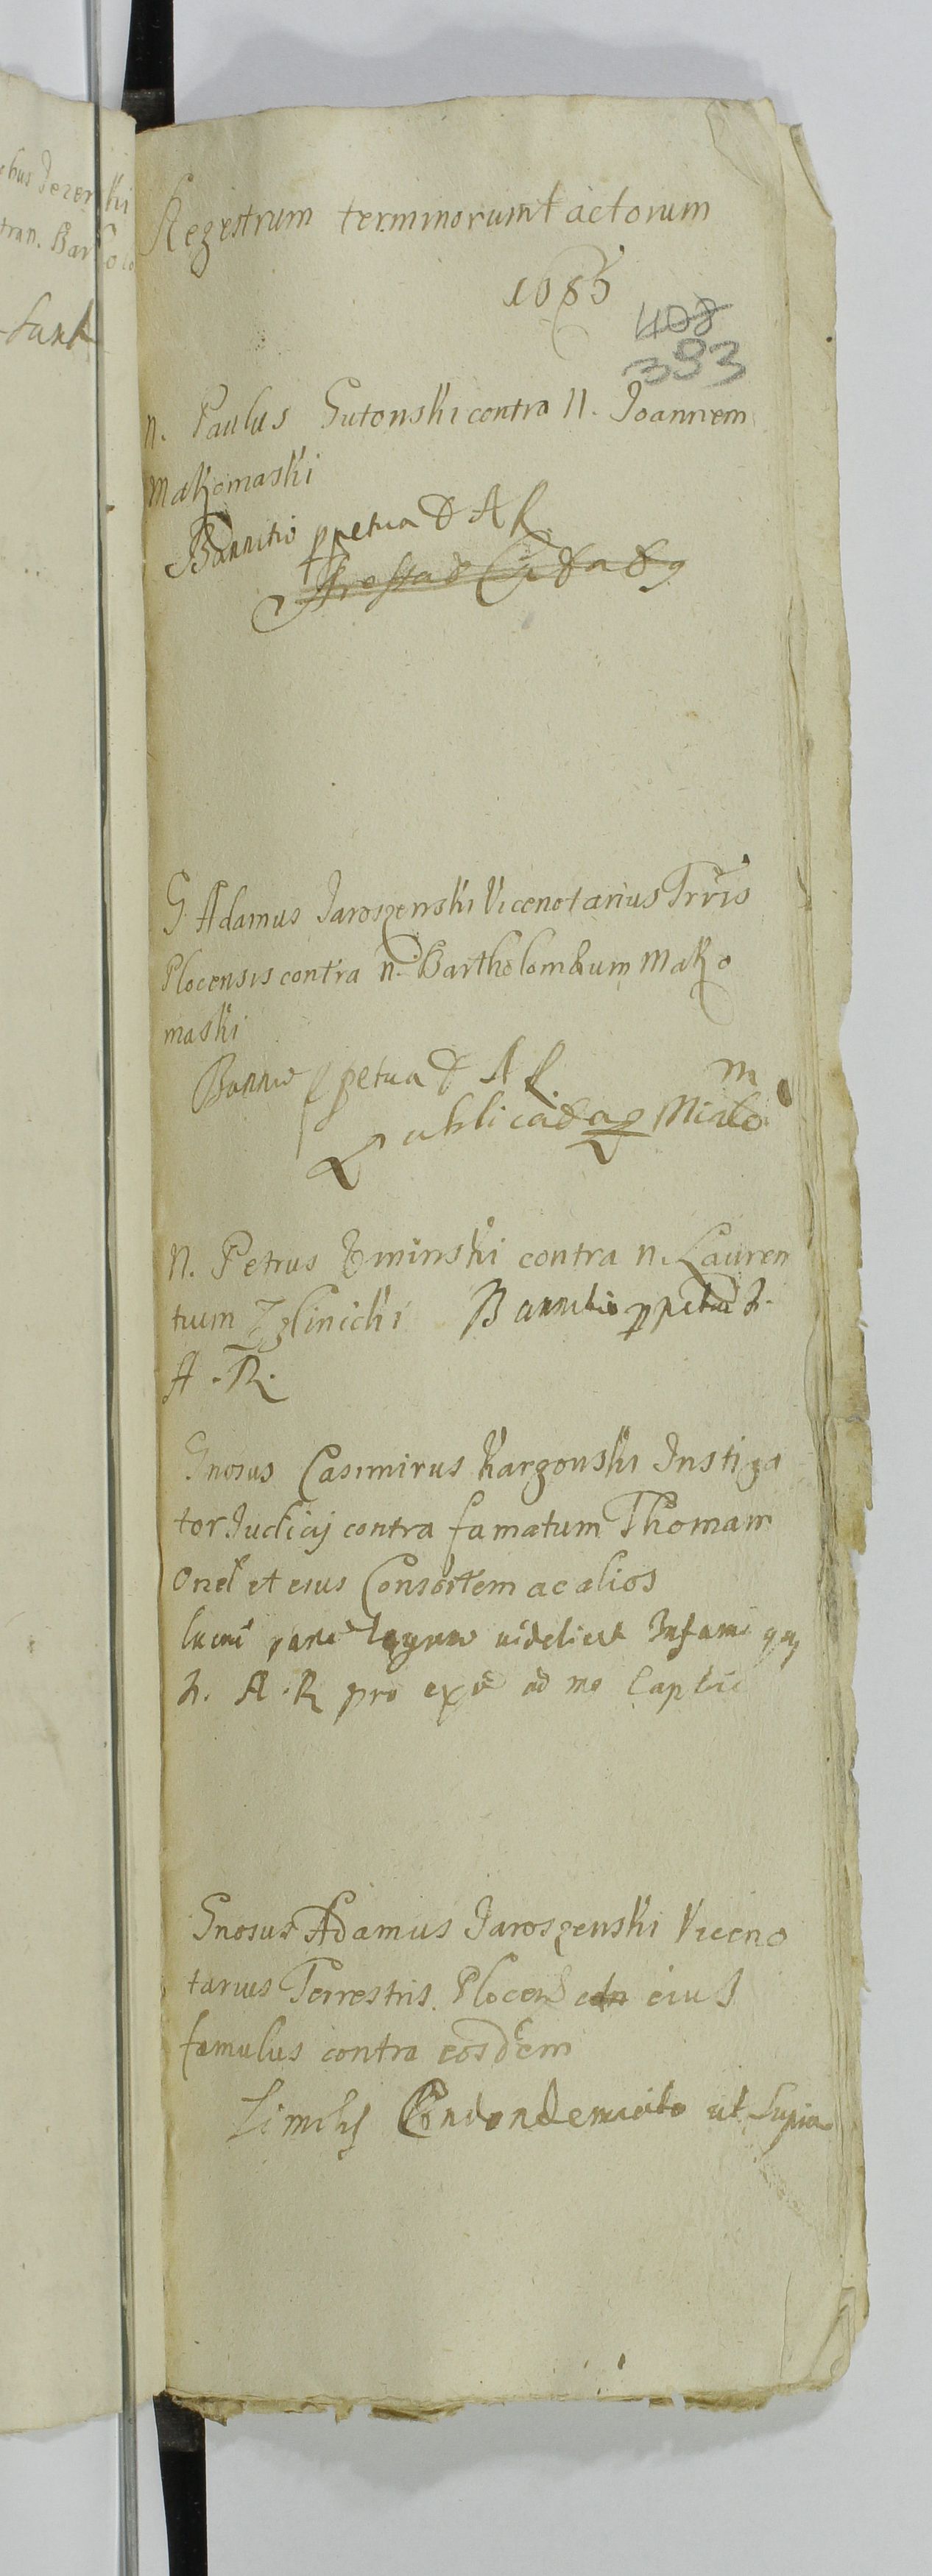 Regestrum terminorum tactorum
1685
408
393
n. Paulus Gutonski contra n. Joannem
Makomaski
Bannitio ppetua & A R
G Adamus Jaroszenski Vicenotarius Trris
Plocensis contra n. Bartholomæum Mako
maski
Bannio ppetua & A R m
Publicā
N. Petrus Zminski contra n. Lauren
tium Zglinicki Bannitio ppetua &.
A. R.
Gnosus Casimirus Kargouski Instiga
tor Judicij contra famatum Thomam
Orzel et eius Consortem ac alios
lucri pane legum uidelicet Infami
&. A. R pro exē ad Captiu
Gnosus Adamus Jaroszenski Viceno
tarius Terrestris Plocens eius
famulus contra eosdem
Simils Condondemnato ut supra